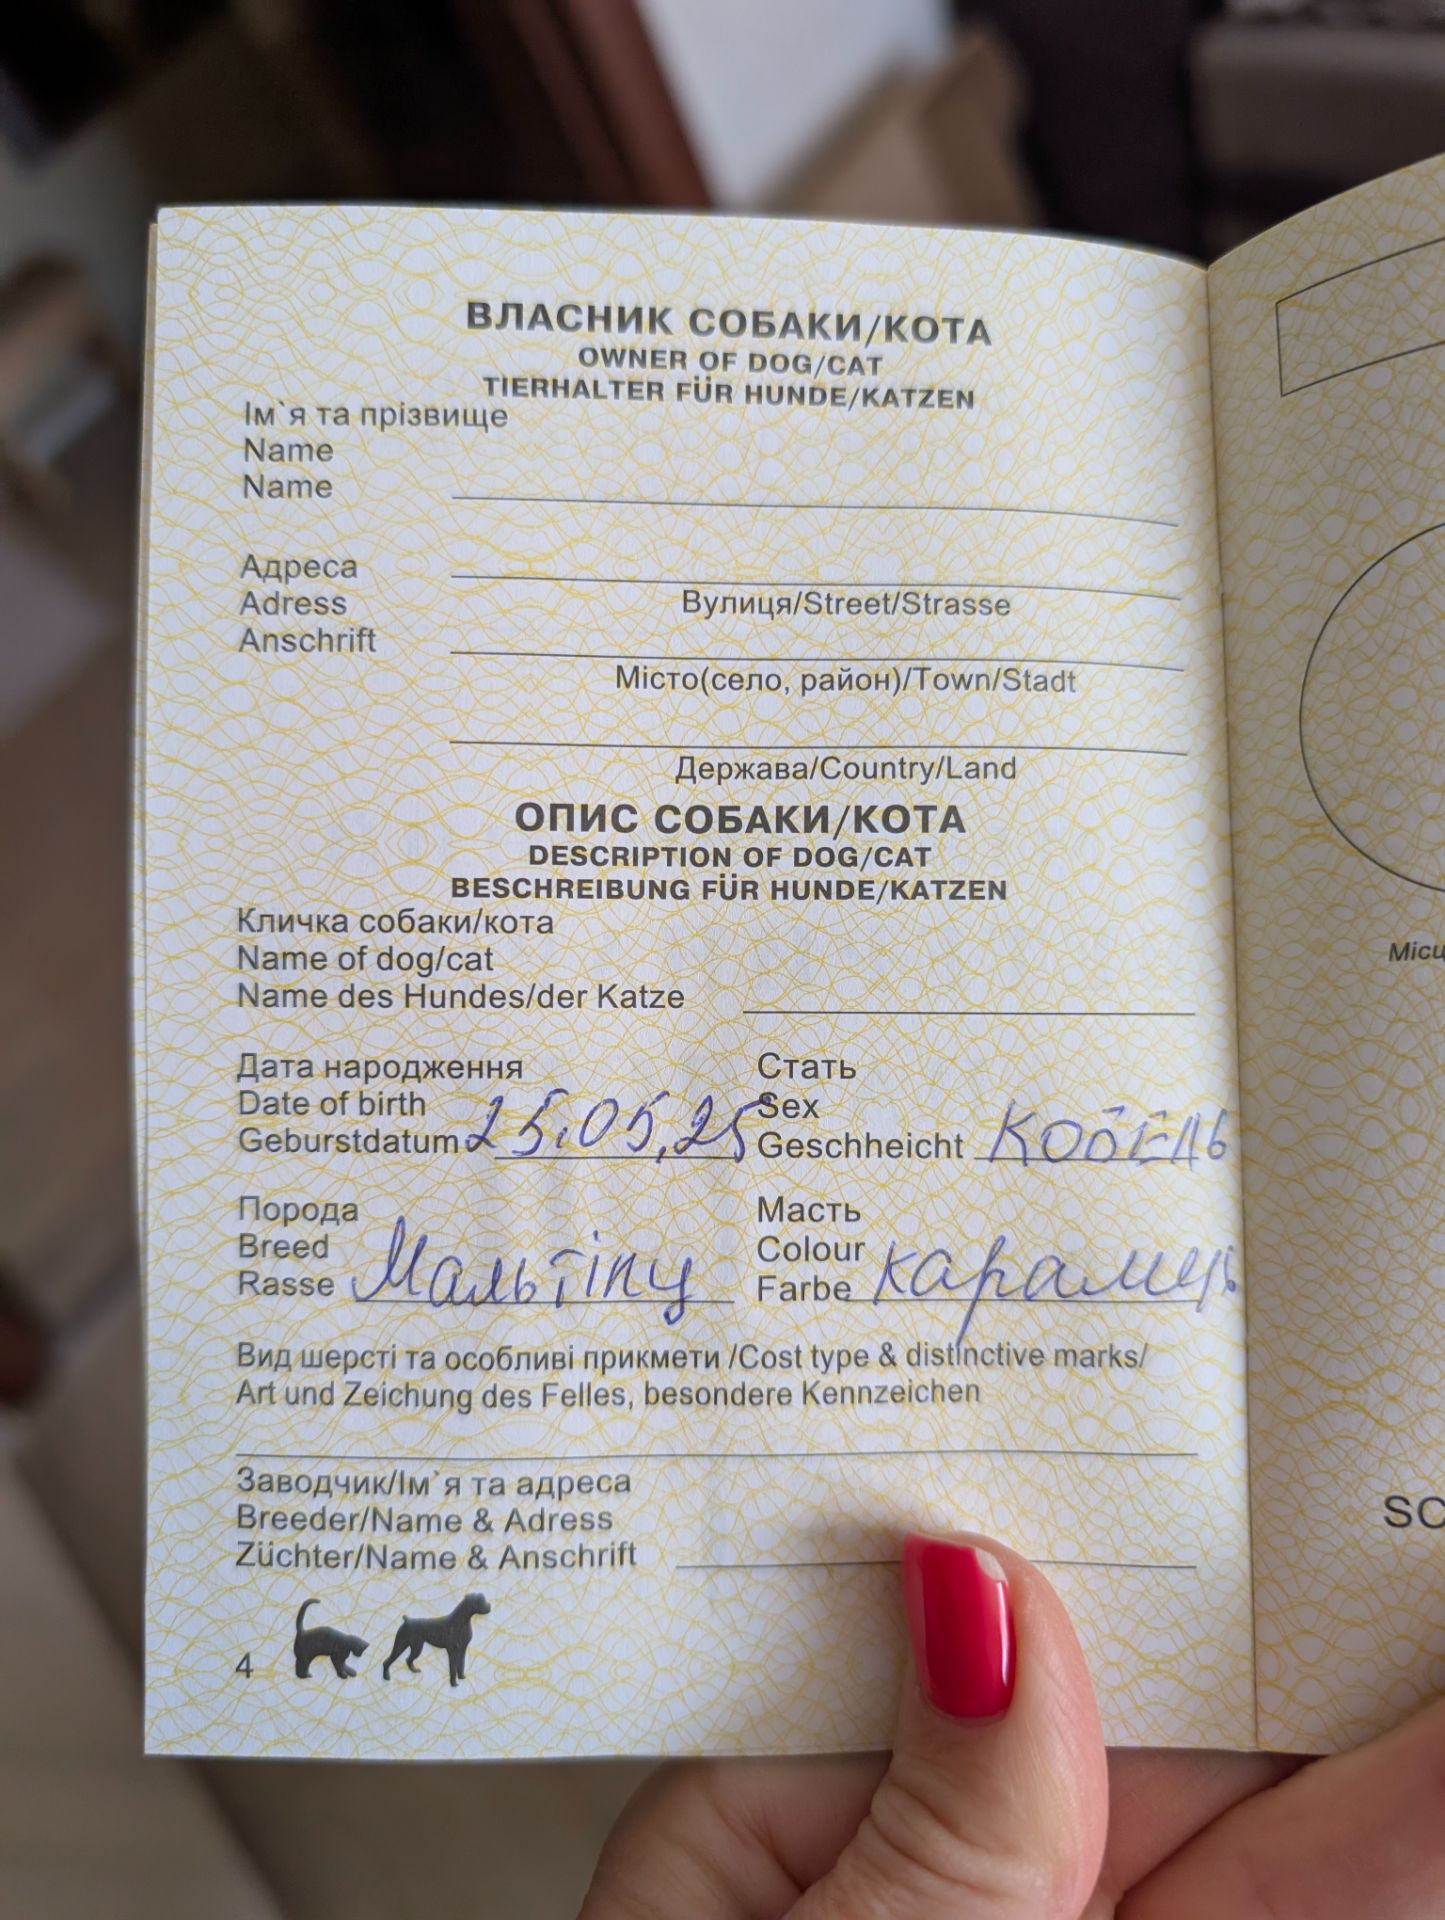 ВЛАСНИК СОБАКИ/КОТА
OWNER OF DOG/CAT
TIERHALTER FÜR HUNDE/KATZEN
Ім`я та прізвище
Name
Name
Адреса
Adress
Anschrift
Вулиця/Street/Strasse
Місто(село, район)/Town/Stadt
Держава/Country/Land
ОПИС СОБАКИ/КОТА
DESCRIPTION OF DOG/CAT
BESCHREIBUNG FÜR HUNDE/KATZEN
Кличка собаки/кота
Name of dog/cat
Name des Hundes/der Katze
Дата народження
Date of birth
Geburstdatum 25.05.25
Стать
Sex
Geschheicht кобель
Порода
Breed
Rasse Мальтіпу
Масть
Colour
Farbe карамель
Вид шерсті та особливі прикмети /Cost type & distinctive marks/
Art und Zeichung des Felles, besondere Kennzeichen
Заводчик/Ім`я та адреса
Breeder/Name & Adress
Züchter/Name & Anschrift
4
Місц
SC